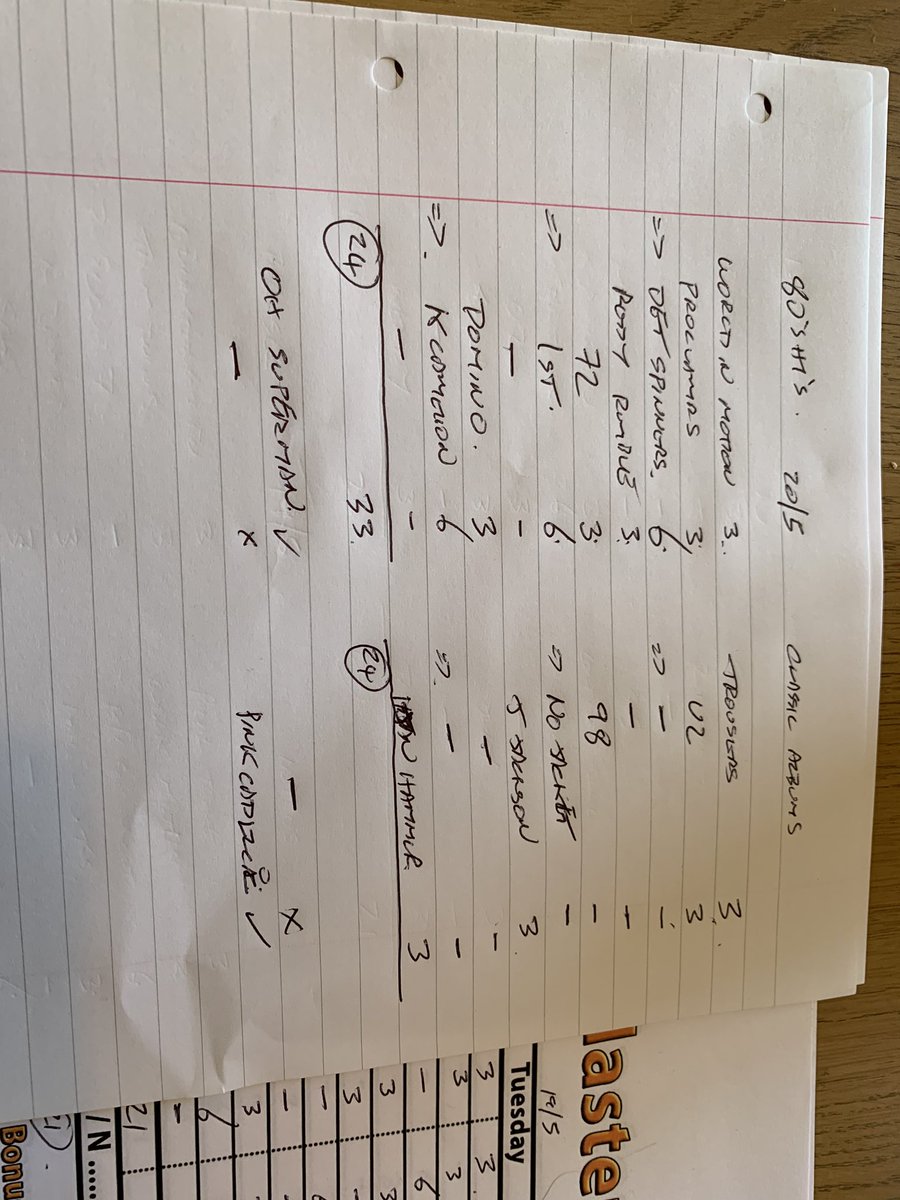 80'S HT'S. 20/5 CLASSIC ALBUMS
WORLD IN MOTION 3. TROUSERS 3.
PROCLAMRS 3. U2 3
=> DET SPINNERS. 6. => - -
RODDY 3. - -
72 3. 98 -
=> 1ST. 6. => NO JACKET -
- - J JACKSON 3.
DOMINO. 3 - -
=>. K COMOTION 6 =>. - -
- - HAMMER 3
24 33. 24
OH SUPERMAN ✓ - x
- x PINK CADILLAC ✓
laste
19/5
Tuesday
3 3.
3 3
- 6
3 3
3 -
-
-
3
6
-
21
/ N ......
Bonu